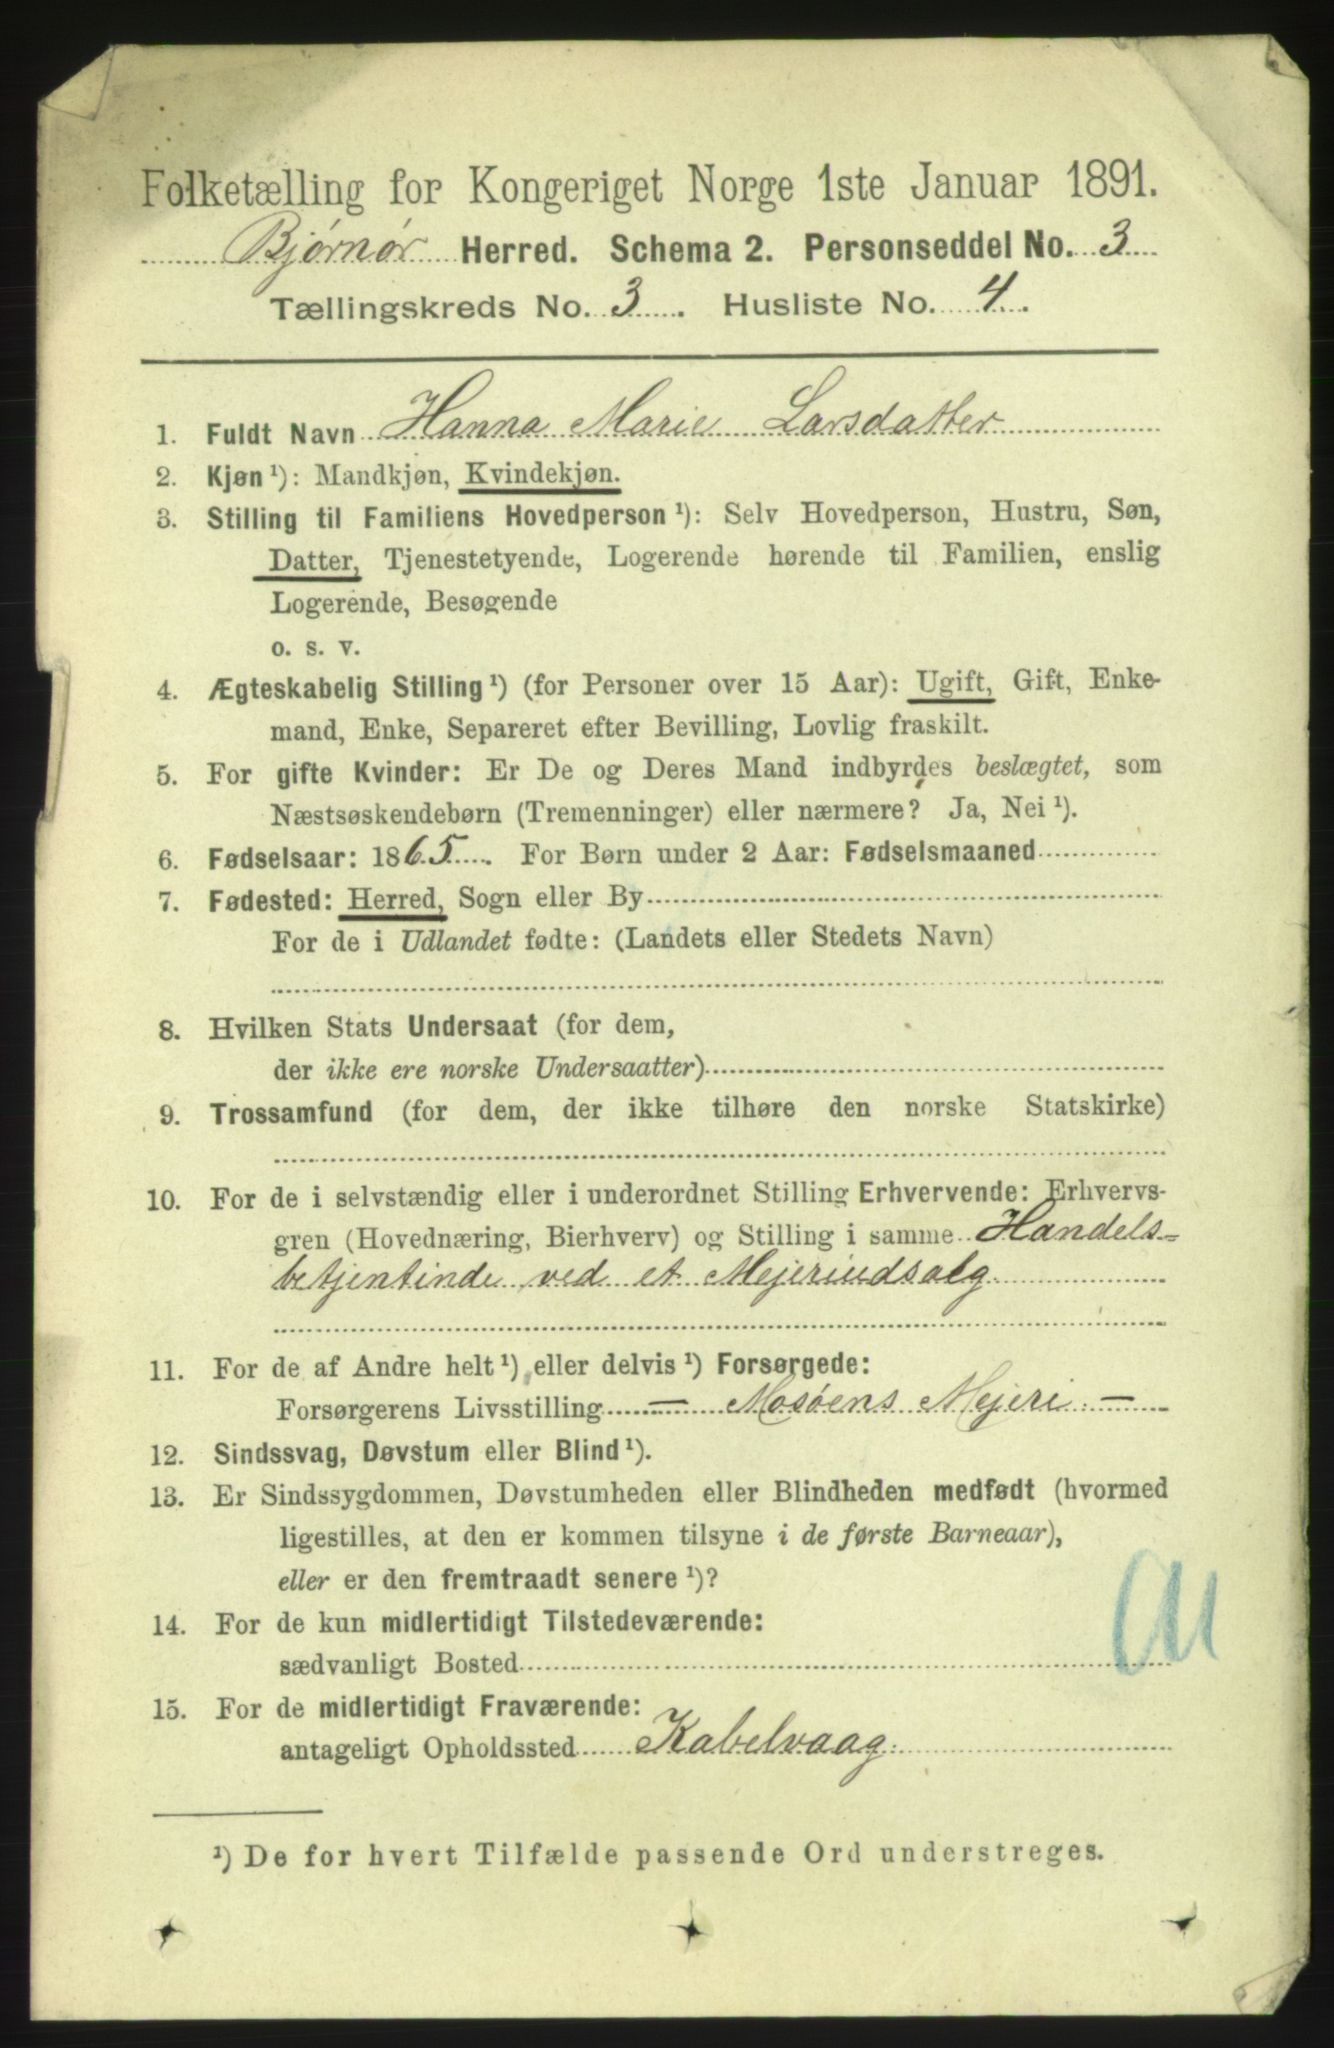 Folketælling for Kongeriget Norge 1ste Januar 1891.
Bjørnør Herred. Schema 2. Personseddel No. 3
Tællingskreds No. 3. Husliste No. 4.
1. Fuldt Navn Hanna Marie Larsdatter
2. Kjøn ¹): Mandkjøn, Kvindekjøn.
3. Stilling til Familiens Hovedperson ¹): Selv Hovedperson, Hustru, Søn,
Datter, Tjenestetyende, Logerende hørende til Familien, enslig
Logerende, Besøgende
o. s. v.
4. Ægteskabelig Stilling ¹) (for Personer over 15 Aar): Ugift, Gift, Enke-
mand, Enke, Separeret efter Bevilling, Lovlig fraskilt.
5. For gifte Kvinder: Er De og Deres Mand indbyrdes beslægtet, som
Næstsøskendebørn (Tremenninger) eller nærmere? Ja, Nei ¹).
6. Fødselsaar: 1865. For Børn under 2 Aar: Fødselsmaaned
7. Fødested: Herred, Sogn eller By
For de i Udlandet fødte: (Landets eller Stedets Navn)
8. Hvilken Stats Undersaat (for dem,
der ikke ere norske Undersaatter)
9. Trossamfund (for dem, der ikke tilhøre den norske Statskirke)
10. For de i selvstændig eller i underordnet Stilling Erhvervende: Erhvervs-
gren (Hovednæring, Bierhverv) og Stilling i samme Handels-
betjentinde ved et Mejeriudsalg
11. For de af Andre helt ¹) eller delvis ¹) Forsørgede:
Forsørgerens Livsstilling — Mosøens Mejeri —
12. Sindssvag, Døvstum eller Blind ¹).
13. Er Sindssygdommen, Døvstumheden eller Blindheden medfødt (hvormed
ligestilles, at den er kommen tilsyne i de første Barneaar),
eller er den fremtraadt senere ¹)?
14. For de kun midlertidigt Tilstedeværende:
sædvanligt Bosted
15. For de midlertidigt Fraværende:
antageligt Opholdssted Kabelvaag
¹) De for hvert Tilfælde passende Ord understreges.